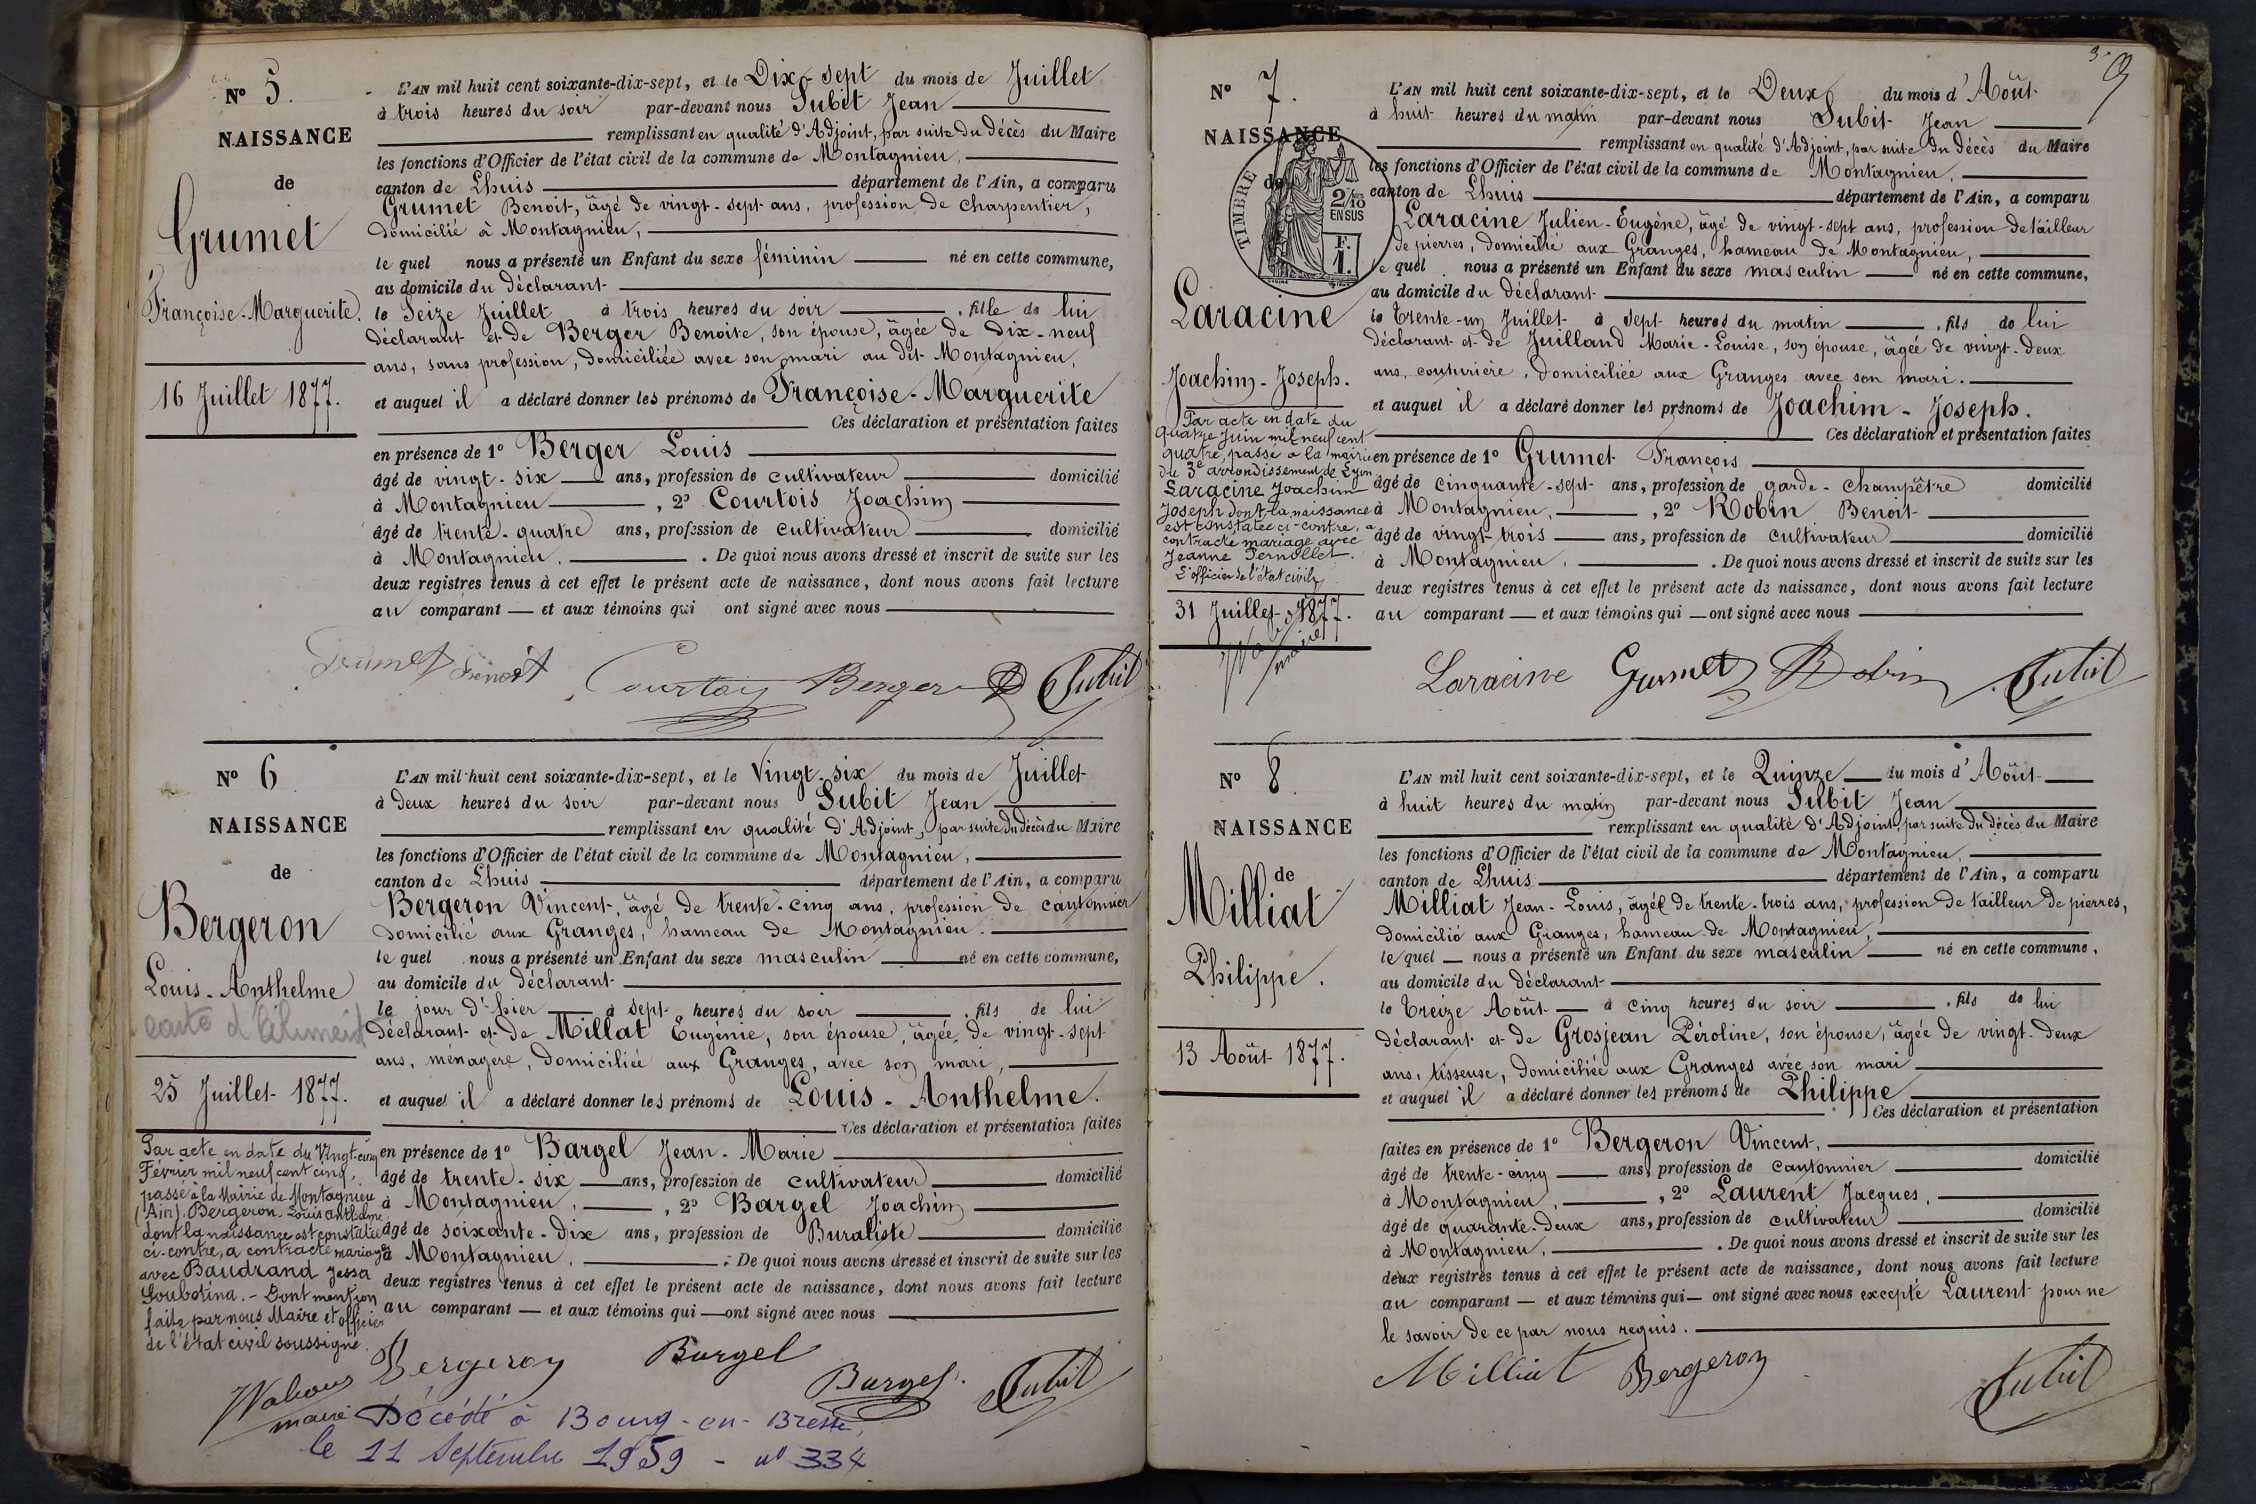 N° 5.
NAISSANCE
de
Grumet
Françoise-Marguerite.
16 Juillet 1877.
L'AN mil huit cent soixante-dix-sept, et le Dix-sept du mois de Juillet
à trois heures du soir par-devant nous Subit Jean
remplissant en qualité d'Adjoint, par suite du décès du Maire
les fonctions d'Officier de l'état civil de la commune de Montagnieu,
canton de Lhuis département de l'Ain, a comparu
Grumet Benoit, âgé de vingt-sept ans, profession de charpentier,
domicilié à Montagnieu,
lequel nous a présenté un Enfant du sexe féminin né en cette commune,
au domicile du déclarant
le Seize Juillet à trois heures du soir, fille de lui
déclarant et de Berger Benoite, son épouse, âgée de dix-neuf
ans, sans profession, domiciliée avec son mari au dit Montagnieu,
et auquel il a déclaré donner les prénoms de Françoise-Marguerite
Ces déclaration et présentation faites
en présence de 1° Berger Louis
âgé de vingt-six ans, profession de cultivateur domicilié
à Montagnieu, 2° Courtois Joachim
âgé de trente-quatre ans, profession de cultivateur domicilié
à Montagnieu. De quoi nous avons dressé et inscrit de suite sur les
deux registres tenus à cet effet le présent acte de naissance, dont nous avons fait lecture
au comparant et aux témoins qui ont signé avec nous
Grumet Benoit Courtois Berger Subit
N° 6
NAISSANCE
de
Bergeron
Louis-Anthelme
carte d'aliment
25 Juillet 1877.
Par acte en date du Vingt-cinq
Février mil neuf cent cinq,
passé à la Mairie de Montagnieu
(Ain), Bergeron Louis Anthelme
dont la naissance est constatée
ci-contre, a contracté mariage
avec Baudrand Jessa
Loubotina. - Dont mention
faite par nous Maire et officier
de l'état civil soussigné.
maire
L'AN mil huit cent soixante-dix-sept, et le Vingt-six du mois de Juillet
à deux heures du soir par-devant nous Subit Jean
remplissant en qualité d'Adjoint, par suite du décès du Maire
les fonctions d'Officier de l'état civil de la commune de Montagnieu,
canton de Lhuis département de l'Ain, a comparu
Bergeron Vincent, âgé de trente-cinq ans, profession de cantonnier
domicilié aux Granges, hameau de Montagnieu.
lequel nous a présenté un Enfant du sexe masculin né en cette commune,
au domicile du déclarant
le jour d'hier à sept heures du soir, fils de lui
déclarant et de Millat Eugénie, son épouse, âgée de vingt-sept
ans, ménagère, domiciliée aux Granges, avec son mari,
et auquel il a déclaré donner les prénoms de Louis-Anthelme.
Ces déclaration et présentation faites
en présence de 1° Bargel Jean-Marie
âgé de trente-six ans, profession de cultivateur domicilié
à Montagnieu, 2° Bargel Joachim
âgé de soixante-dix ans, profession de Buraliste domicilié
à Montagnieu. De quoi nous avons dressé et inscrit de suite sur les
deux registres tenus à cet effet le présent acte de naissance, dont nous avons fait lecture
au comparant et aux témoins qui ont signé avec nous
Bergeron Bargel Bargel Subit
Décédé à Bourg-en-Bresse,
le 11 Septembre 1959 - n° 334
9
N° 7.
NAISSANCE
de
TIMBRE
2/10
EN SUS
F.
1.
Laracine
Joachim-Joseph.
Par acte en date du
quatre Juin mil neuf cent
quatre, passé à la mairie
du 3e arrondissement de Lyon
Laracine Joachim
Joseph dont la naissance
est constatée ci-contre, a
contracté mariage avec
Jeanne Pernollet.
L'officier de l'état civil,
31 Juillet 1877.
maire
L'AN mil huit cent soixante-dix-sept, et le Deux du mois d'Août
à huit heures du matin par-devant nous Subit Jean
remplissant en qualité d'Adjoint, par suite du décès du Maire
les fonctions d'Officier de l'état civil de la commune de Montagnieu,
canton de Lhuis département de l'Ain, a comparu
Laracine Julien-Eugène, âgé de vingt-sept ans, profession de tailleur
de pierres, domicilié aux Granges, hameau de Montagnieu,
lequel nous a présenté un Enfant du sexe masculin né en cette commune,
au domicile du déclarant
le trente-un Juillet à sept heures du matin, fils de lui
déclarant et de Juilland Marie-Louise, son épouse, âgée de vingt-deux
ans, couturière, domiciliée aux Granges avec son mari.
et auquel il a déclaré donner les prénoms de Joachim-Joseph.
Ces déclaration et présentation faites
en présence de 1° Grumet François
âgé de cinquante-sept ans, profession de garde-champêtre domicilié
à Montagnieu, 2° Robin Benoit
âgé de vingt-trois ans, profession de cultivateur domicilié
à Montagnieu. De quoi nous avons dressé et inscrit de suite sur les
deux registres tenus à cet effet le présent acte de naissance, dont nous avons fait lecture
au comparant et aux témoins qui ont signé avec nous
Laracine Grumet Robin Subit
N° 8.
NAISSANCE
de
Milliat
Philippe.
13 Août 1877.
L'AN mil huit cent soixante-dix-sept, et le Quinze du mois d'Août
à huit heures du matin par-devant nous Subit Jean
remplissant en qualité d'Adjoint, par suite du décès du Maire
les fonctions d'Officier de l'état civil de la commune de Montagnieu,
canton de Lhuis département de l'Ain, a comparu
Milliat Jean-Louis, âgé de trente-trois ans, profession de tailleur de pierres,
domicilié aux Granges, hameau de Montagnieu,
lequel nous a présenté un Enfant du sexe masculin né en cette commune,
au domicile du déclarant
le treize Août à cinq heures du soir, fils de lui
déclarant et de Grosjean Pérotine, son épouse, âgée de vingt-deux
ans, tisseuse, domiciliée aux Granges avec son mari
et auquel il a déclaré donner les prénoms de Philippe
Ces déclaration et présentation
faites en présence de 1° Bergeron Vincent,
âgé de trente-cinq ans, profession de cantonnier domicilié
à Montagnieu, 2° Laurent Jacques,
âgé de quarante-deux ans, profession de cultivateur domicilié
à Montagnieu. De quoi nous avons dressé et inscrit de suite sur les
deux registres tenus à cet effet le présent acte de naissance, dont nous avons fait lecture
au comparant et aux témoins qui ont signé avec nous excepté Laurent pour ne
le savoir de ce par nous requis.
Milliat Bergeron Subit